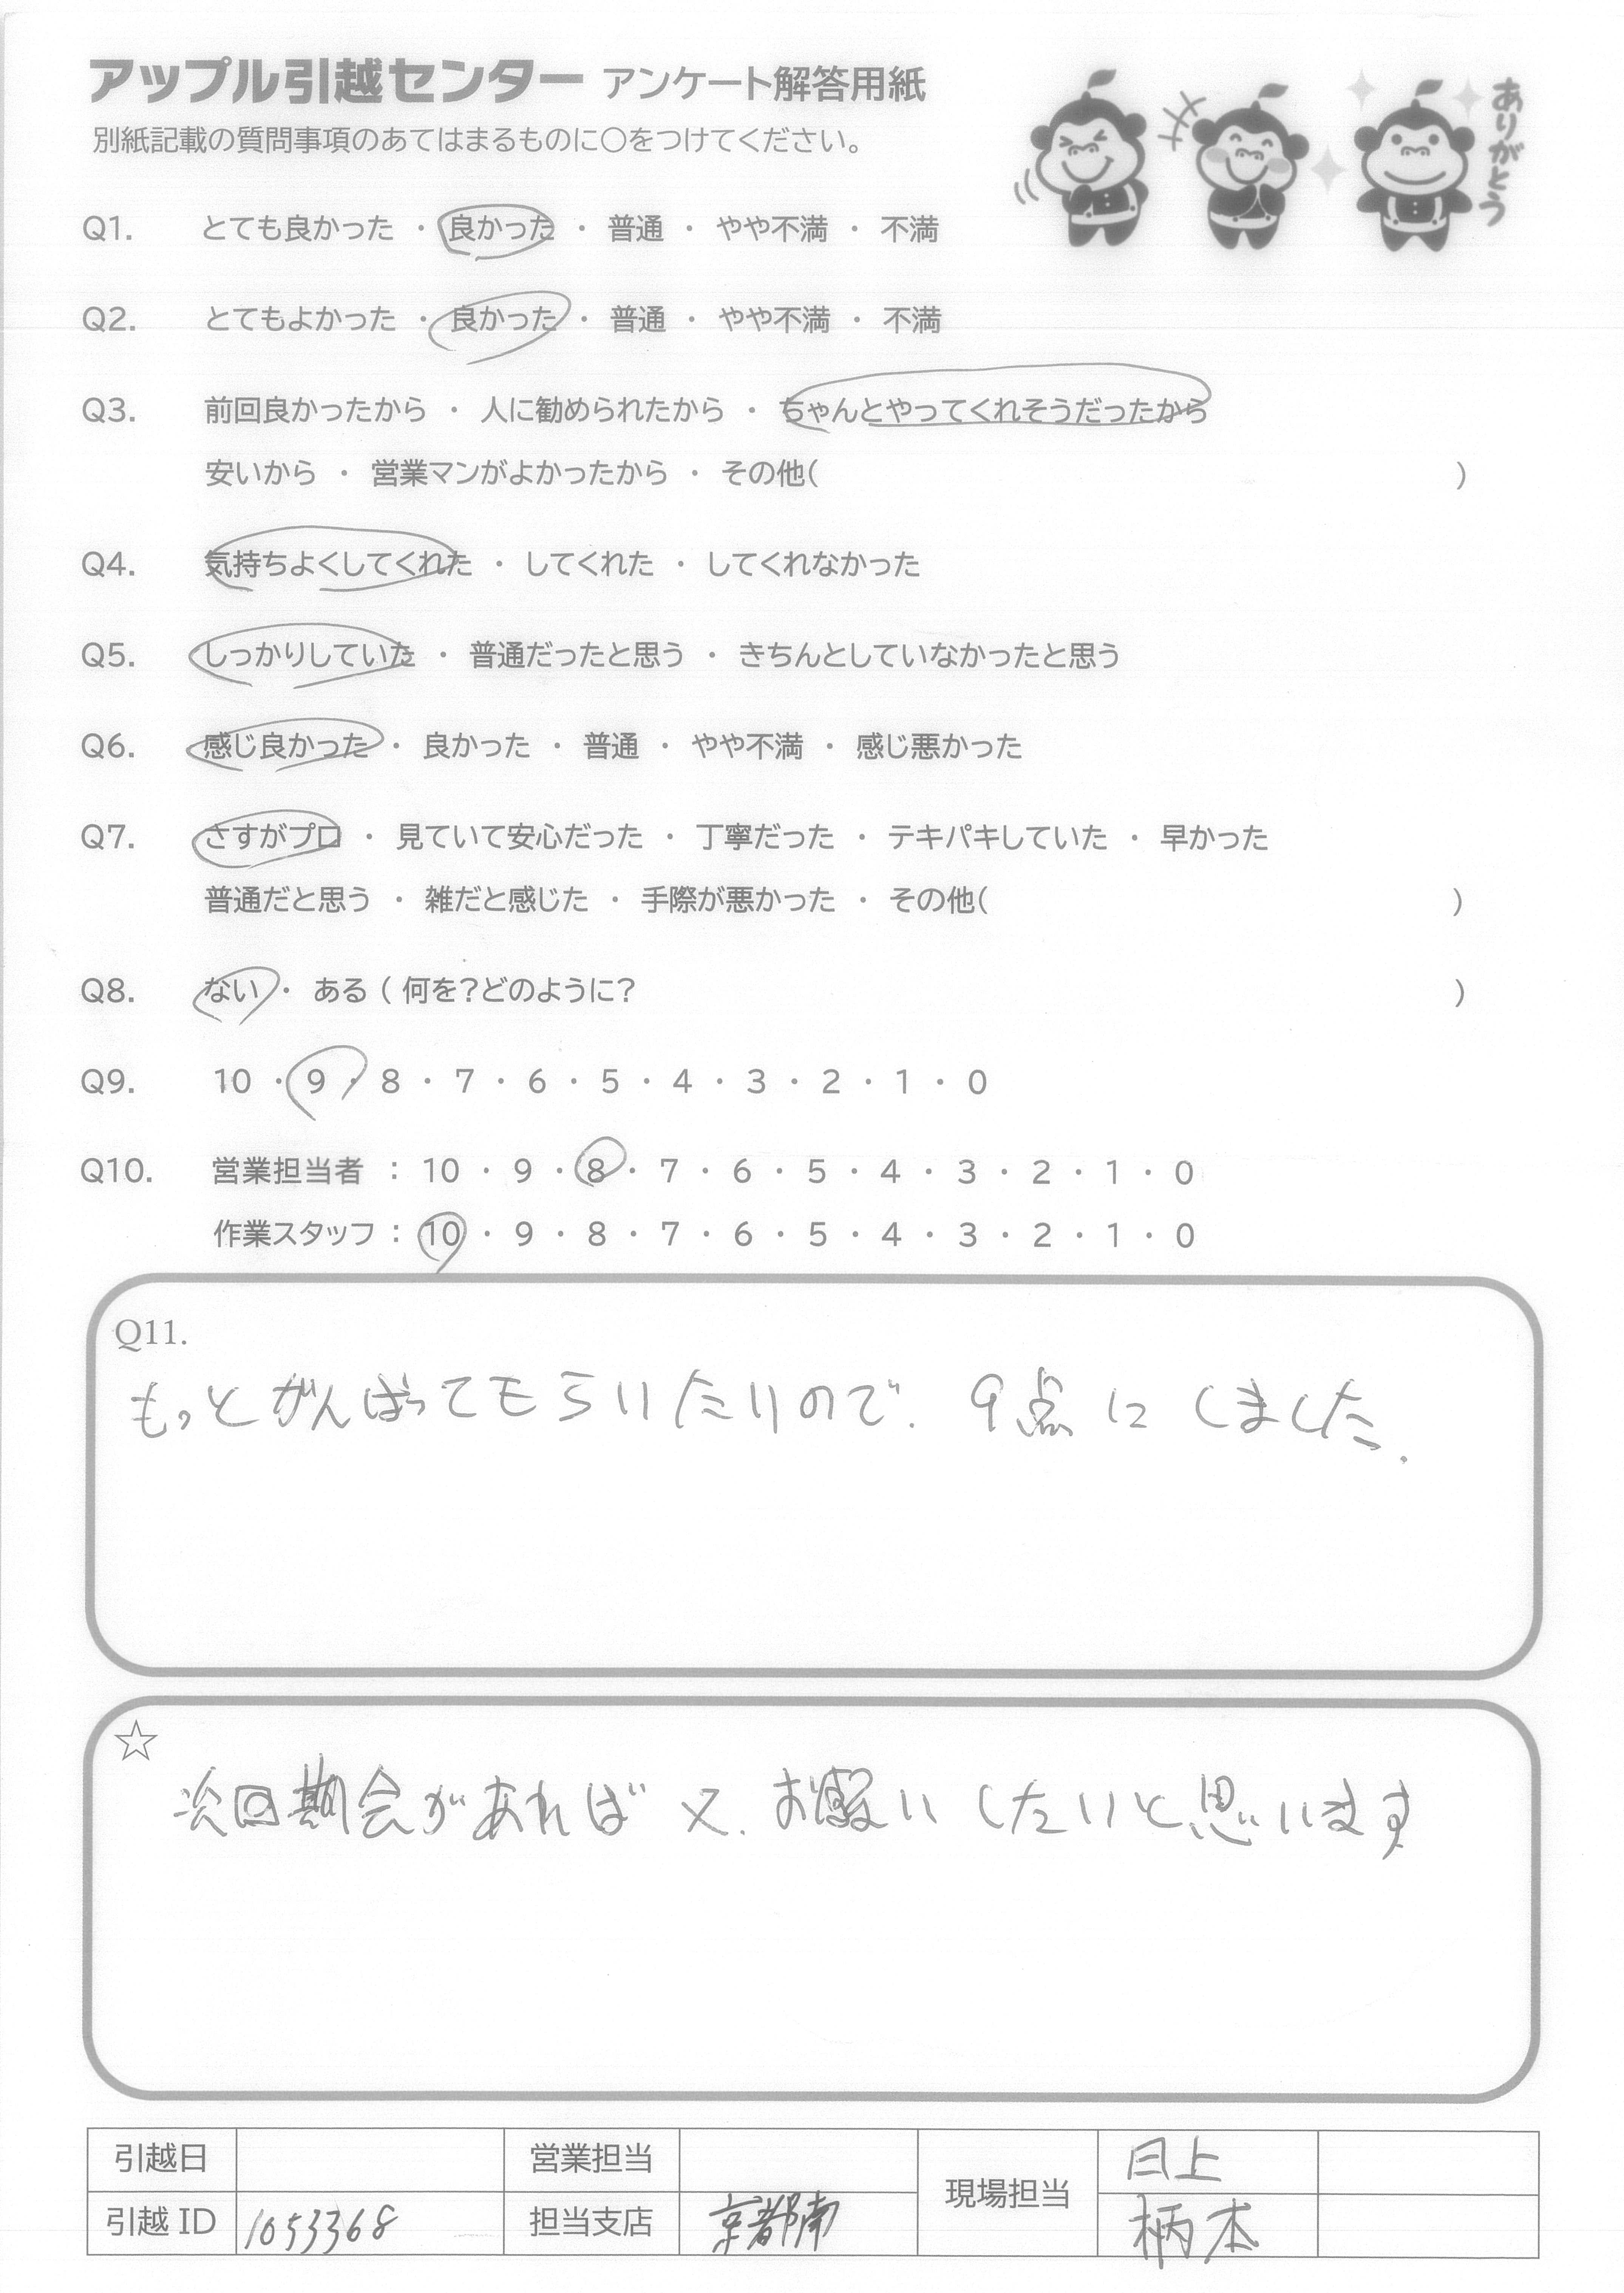 アップル引越センター アンケート解答用紙
別紙記載の質問事項のあてはまるものに○をつけてください。
ありがとう
Q1. とても良かった ・ 良かった ・ 普通 ・ やや不満 ・ 不満
Q2. とてもよかった ・ 良かった ・ 普通 ・ やや不満 ・ 不満
Q3. 前回良かったから ・ 人に勧められたから ・ ちゃんとやってくれそうだったから
安いから ・ 営業マンがよかったから ・ その他( )
Q4. 気持ちよくしてくれた ・ してくれた ・ してくれなかった
Q5. しっかりしていた ・ 普通だったと思う ・ きちんとしていなかったと思う
Q6. 感じ良かった ・ 良かった ・ 普通 ・ やや不満 ・ 感じ悪かった
Q7. さすがプロ ・ 見ていて安心だった ・ 丁寧だった ・ テキパキしていた ・ 早かった
普通だと思う ・ 雑だと感じた ・ 手際が悪かった ・ その他( )
Q8. ない ・ ある ( 何を?どのように? )
Q9. 10 ・ 9 ・ 8 ・ 7 ・ 6 ・ 5 ・ 4 ・ 3 ・ 2 ・ 1 ・ 0
Q10. 営業担当者 : 10 ・ 9 ・ 8 ・ 7 ・ 6 ・ 5 ・ 4 ・ 3 ・ 2 ・ 1 ・ 0
作業スタッフ : 10 ・ 9 ・ 8 ・ 7 ・ 6 ・ 5 ・ 4 ・ 3 ・ 2 ・ 1 ・ 0
Q11.
もっとがんばってもらいたいので、9点にしました.
☆
次回期会があれば又、お願いしたいと思います
引越日 営業担当 現場担当 日上
引越 ID 1053368 担当支店 京都南 柄本